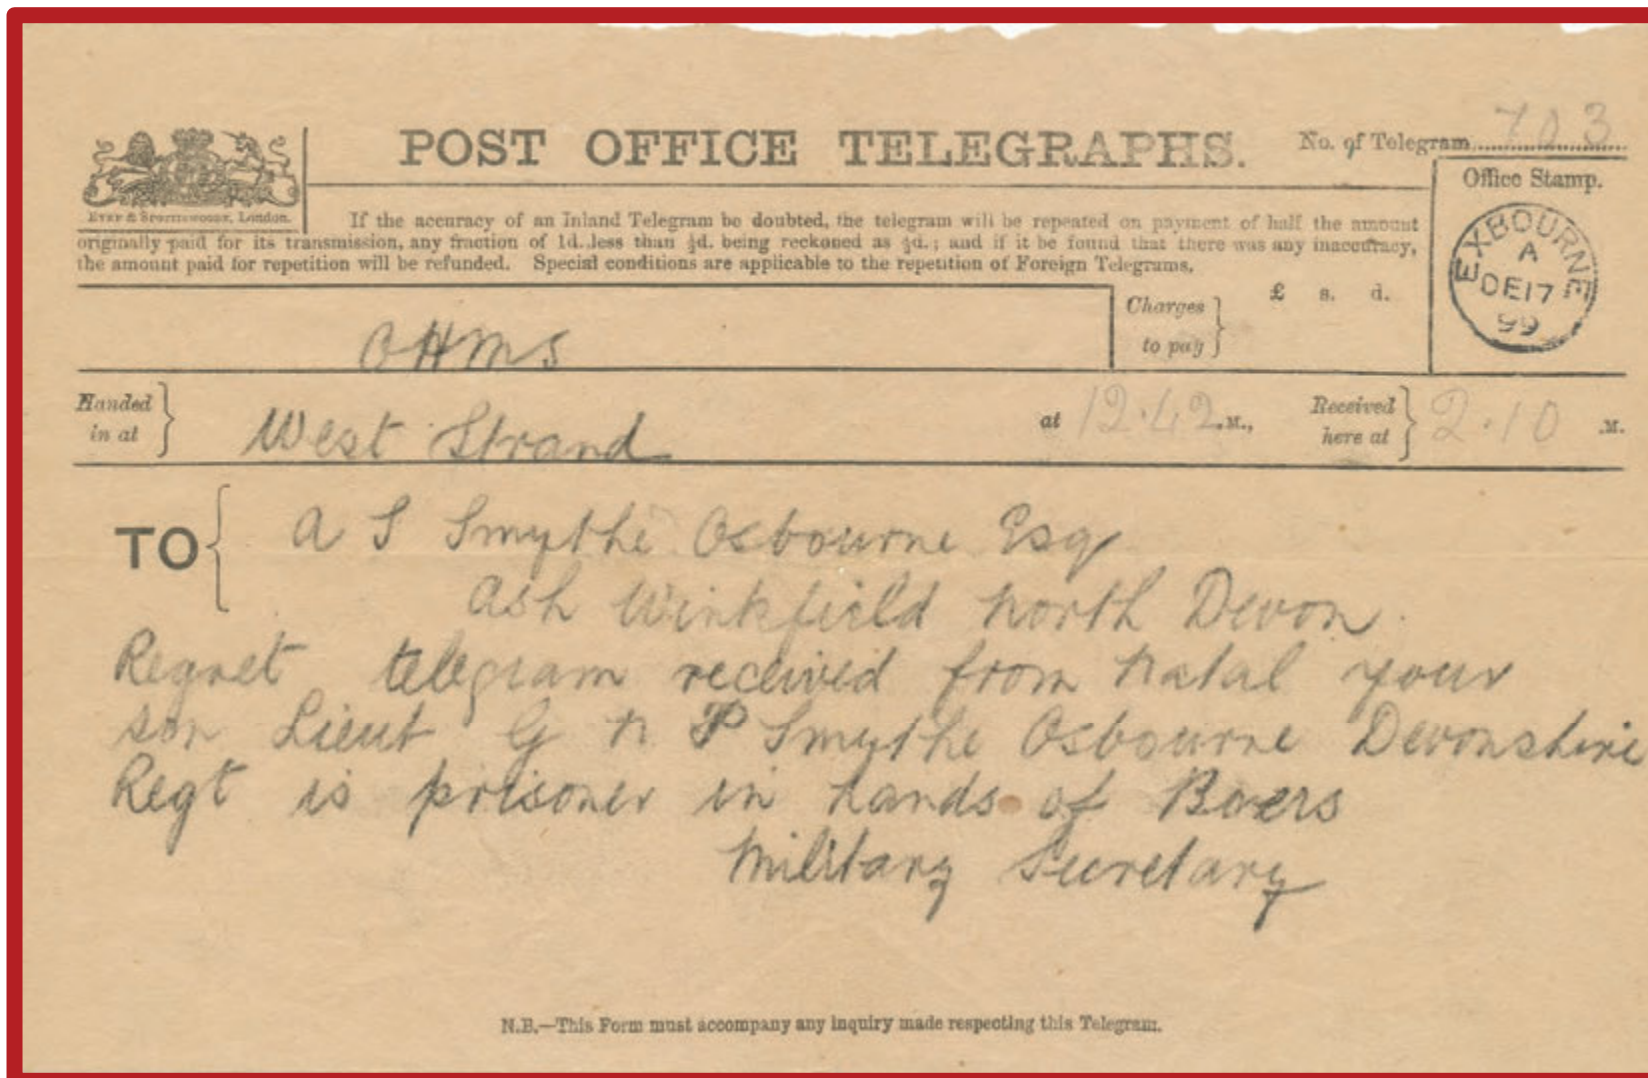 POST OFFICE TELEGRAPHS.
No. of Telegram 703
Office Stamp.
EYRE & SPOTTISWOODE, London.
If the accuracy of an Inland Telegram be doubted, the telegram will be repeated on payment of half the amount
originally paid for its transmission, any fraction of 1d. less than ½d. being reckoned as ½d.; and if it be found that there was any inaccuracy,
the amount paid for repetition will be refunded. Special conditions are applicable to the repetition of Foreign Telegrams.
EXBOURNE
A
DE 17
99
Charges to pay } £ s. d.
OHMS
Handed in at } West Strand at 12.42 .M., Received here at } 2.10 .M.
TO { A S Smythe Osbourne Esq
Ash Winkfield North Devon
Regret telegram received from Natal your
son Lieut G N P Smythe Osbourne Devonshire
Regt is prisoner in hands of Boers
Military Secretary
N.B.—This Form must accompany any inquiry made respecting this Telegram.